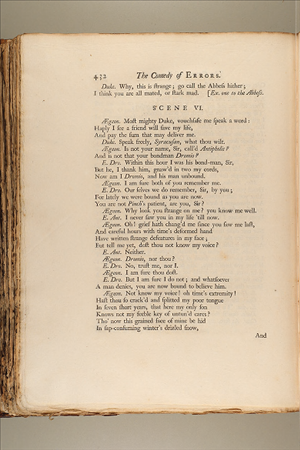 432 The Comedy of ERRORS.
Duke. Why, this is ſtrange; go call the Abbeſs hither;
I think you are all mated, or ſtark mad. [Ex. one to the Abbeſs.
SCENE VI.
Ægeon. Moſt mighty Duke, vouchſafe me ſpeak a word:
Haply I ſee a friend will ſave my life,
And pay the ſum that may deliver me.
Duke. Speak freely, Syracuſan, what thou wilt.
Ægeon. Is not your name, Sir, call'd Antipholis?
And is not that your bondman Dromio?
E. Dro. Within this hour I was his bond-man, Sir,
But he, I thank him, gnaw'd in two my cords,
Now am I Dromio, and his man unbound.
Ægeon. I am ſure both of you remember me.
E. Dro. Our ſelves we do remember, Sir, by you;
For lately we were bound as you are now.
You are not Pinch's patient, are you, Sir?
Ægeon. Why look you ſtrange on me? you know me well.
E. Ant. I never ſaw you in my life 'till now.
Ægeon. Oh! grief hath chang'd me ſince you ſaw me laſt,
And careful hours with time's deformed hand
Have written ſtrange defeatures in my face;
But tell me yet, doſt thou not know my voice?
E. Ant. Neither.
Ægeon. Dromio, nor thou?
E. Dro. No, truſt me, nor I.
Ægeon. I am ſure thou doſt.
E. Dro. But I am ſure I do not; and whatſoever
A man denies, you are now bound to believe him.
Ægeon. Not know my voice! oh time's extremity!
Haſt thou ſo crack'd and ſplitted my poor tongue
In ſeven ſhort years, that here my only ſon
Knows not my feeble key of untun'd cares?
Tho' now this grained face of mine be hid
In ſap-conſuming winter's drizled ſnow,
And